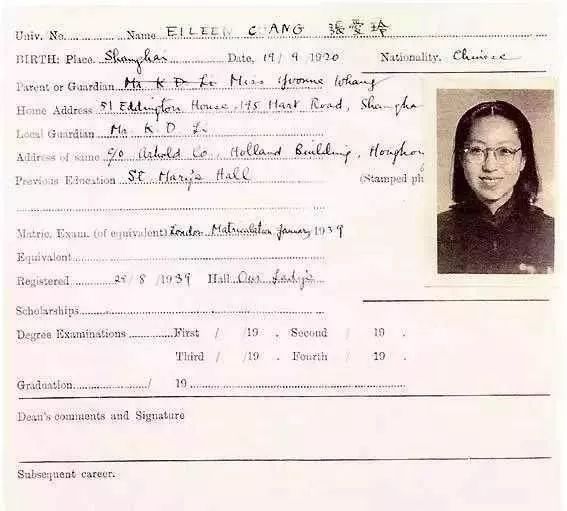 Univ. No. Name EILEEN CHANG 張愛玲
BIRTH: Place. Shanghai Date, 19/ 9 1920 Nationality. Chinese
Parent or Guardian Mr K D Li Miss Yvonne Whang
Home Address 51 Eddington House, 195 Hart Road, Shangha
Local Guardian Mr. K D Li
Address of same c/o Arnhold Co., Holland Building, Hongkon
Previous Education St. Mary's Hall (Stamped ph
Matric. Exam. (of equivalent) London Matriculation January 1939
Equivalent
Registered 29/ 8 /1939 Hall Our Lady's
Scholarships
Degree Examinations First / /19 . Second / 19 .
Third / /19 . Fourth / 19 .
Graduation / 19
Dean's comments and Signature
Subsequent career.